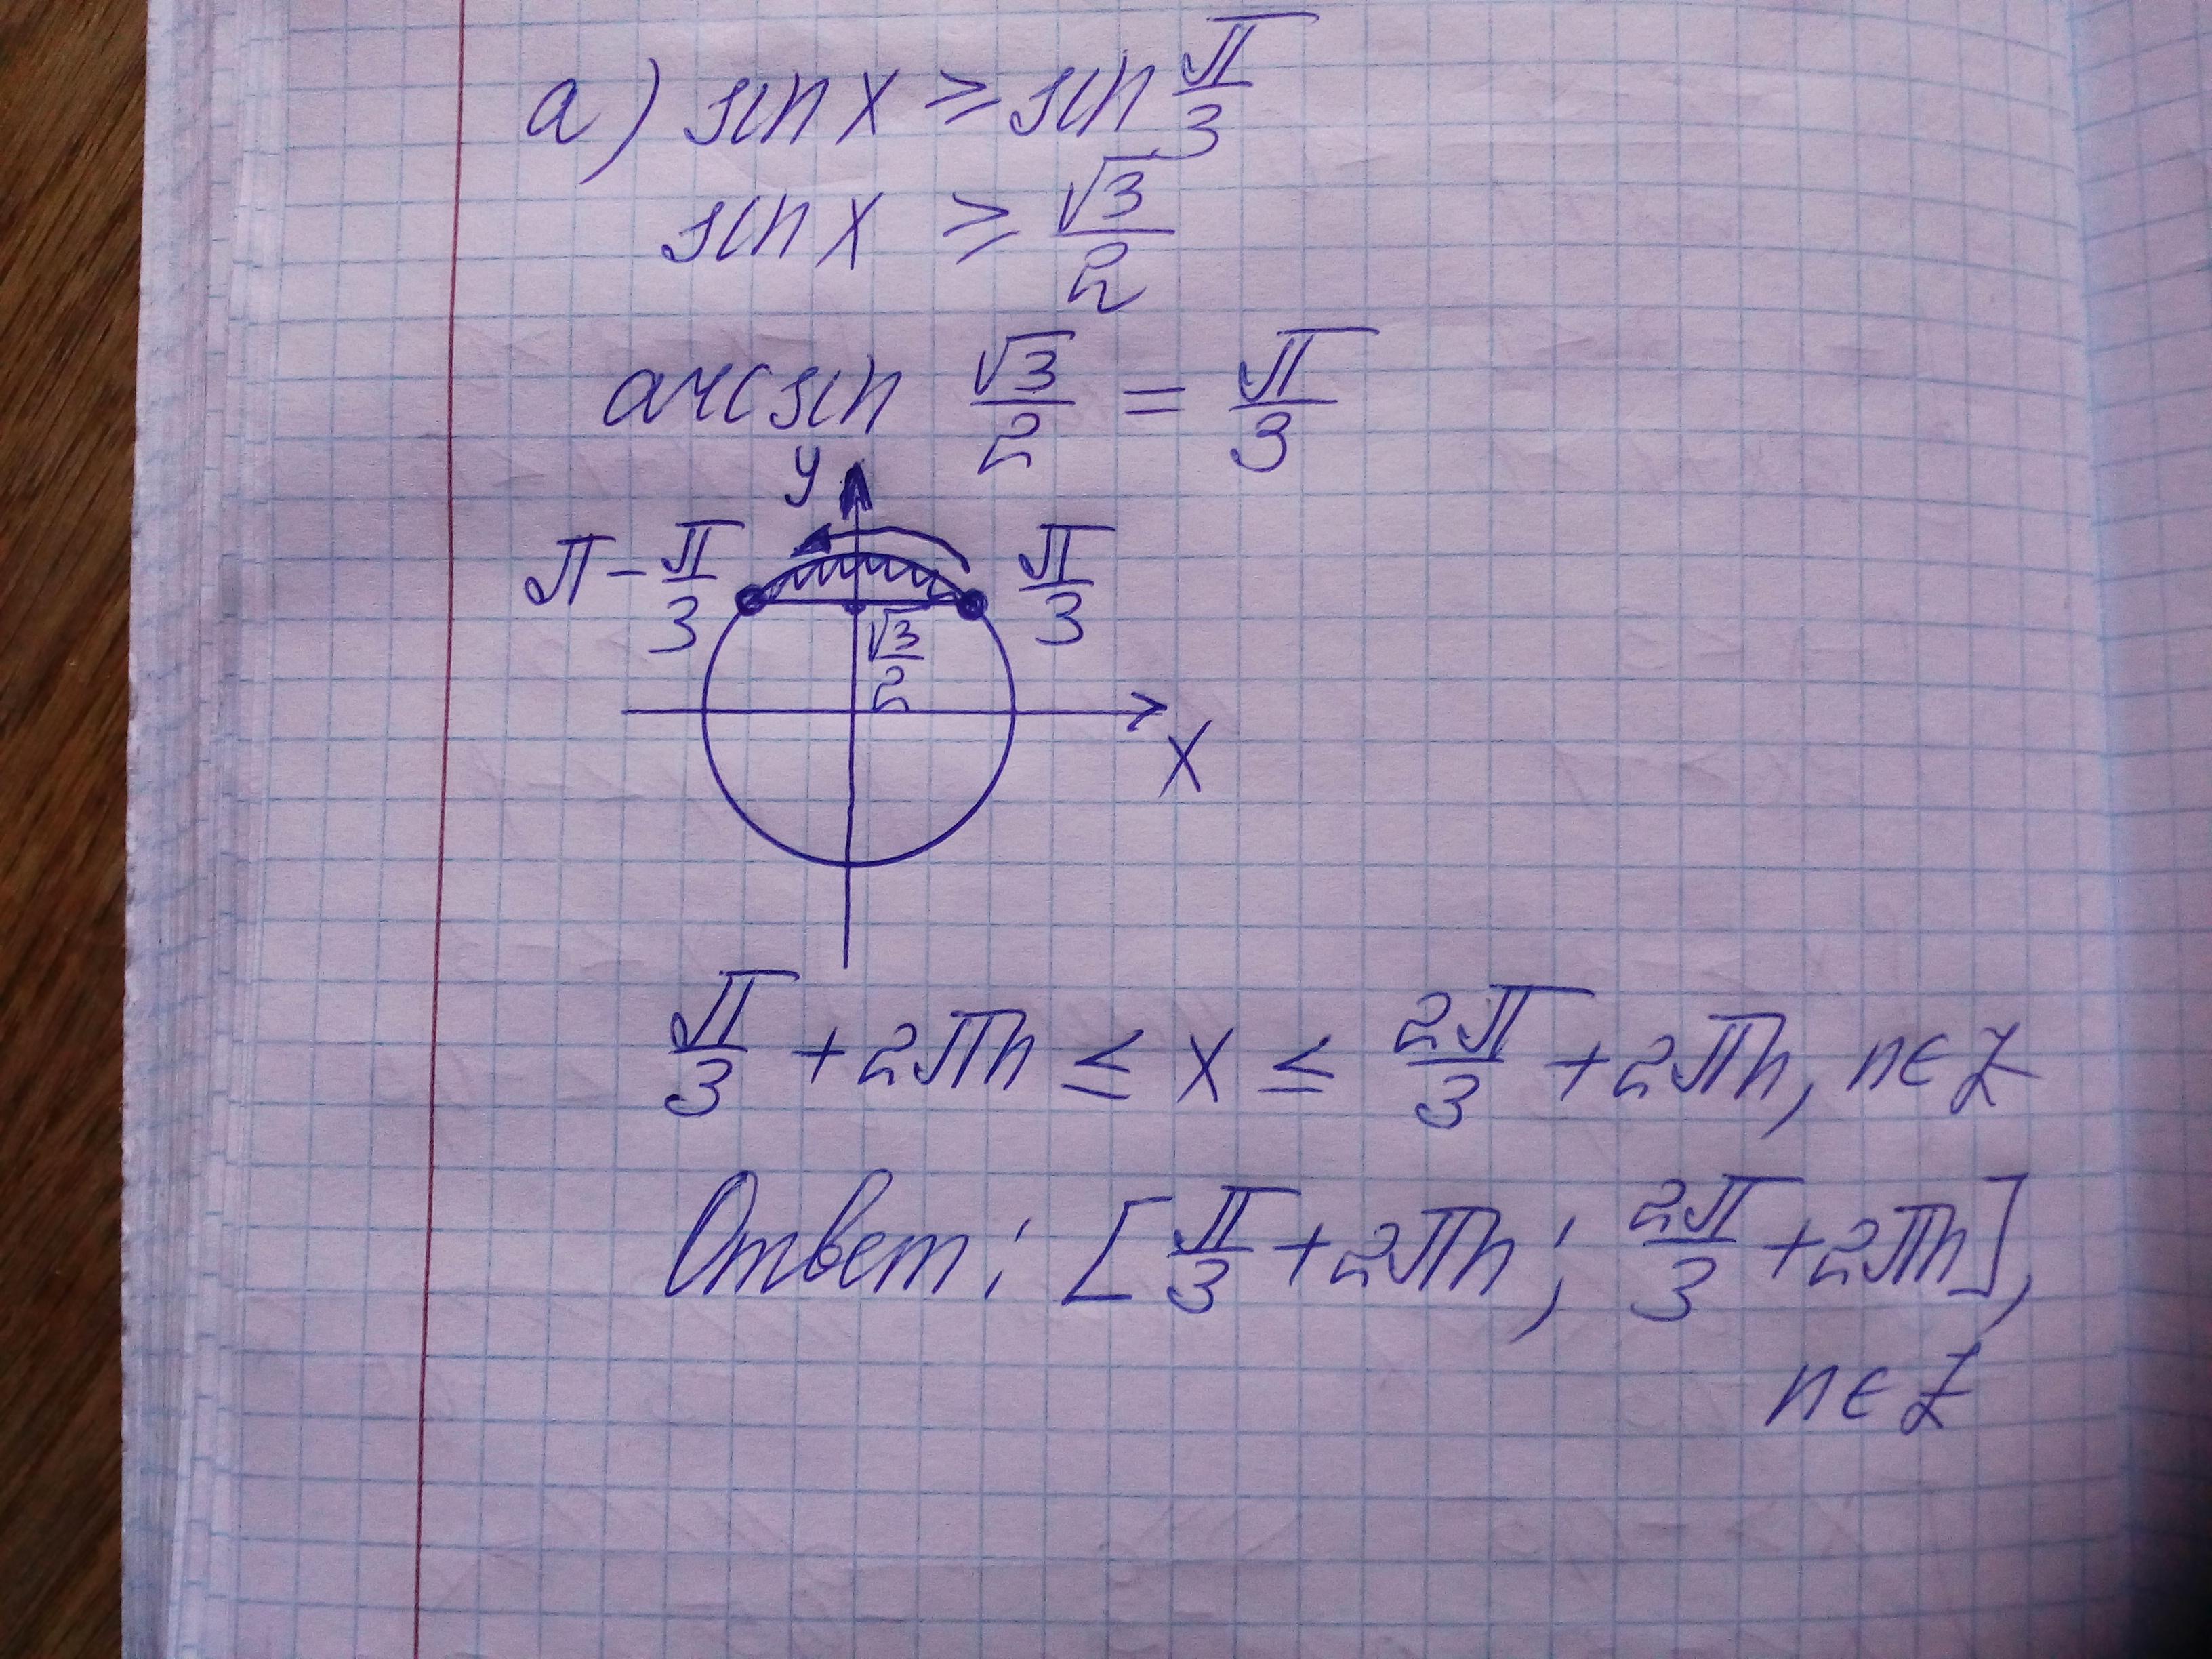 а) sin x ≥ sin π/3
sin x ≥ √3/2
arcsin √3/2 = π/3
y
π - π/3
π/3
√3/2
x
π/3 + 2πn ≤ x ≤ 2π/3 + 2πn, n ∈ Z
Ответ: [π/3 + 2πn; 2π/3 + 2πn],
n ∈ Z